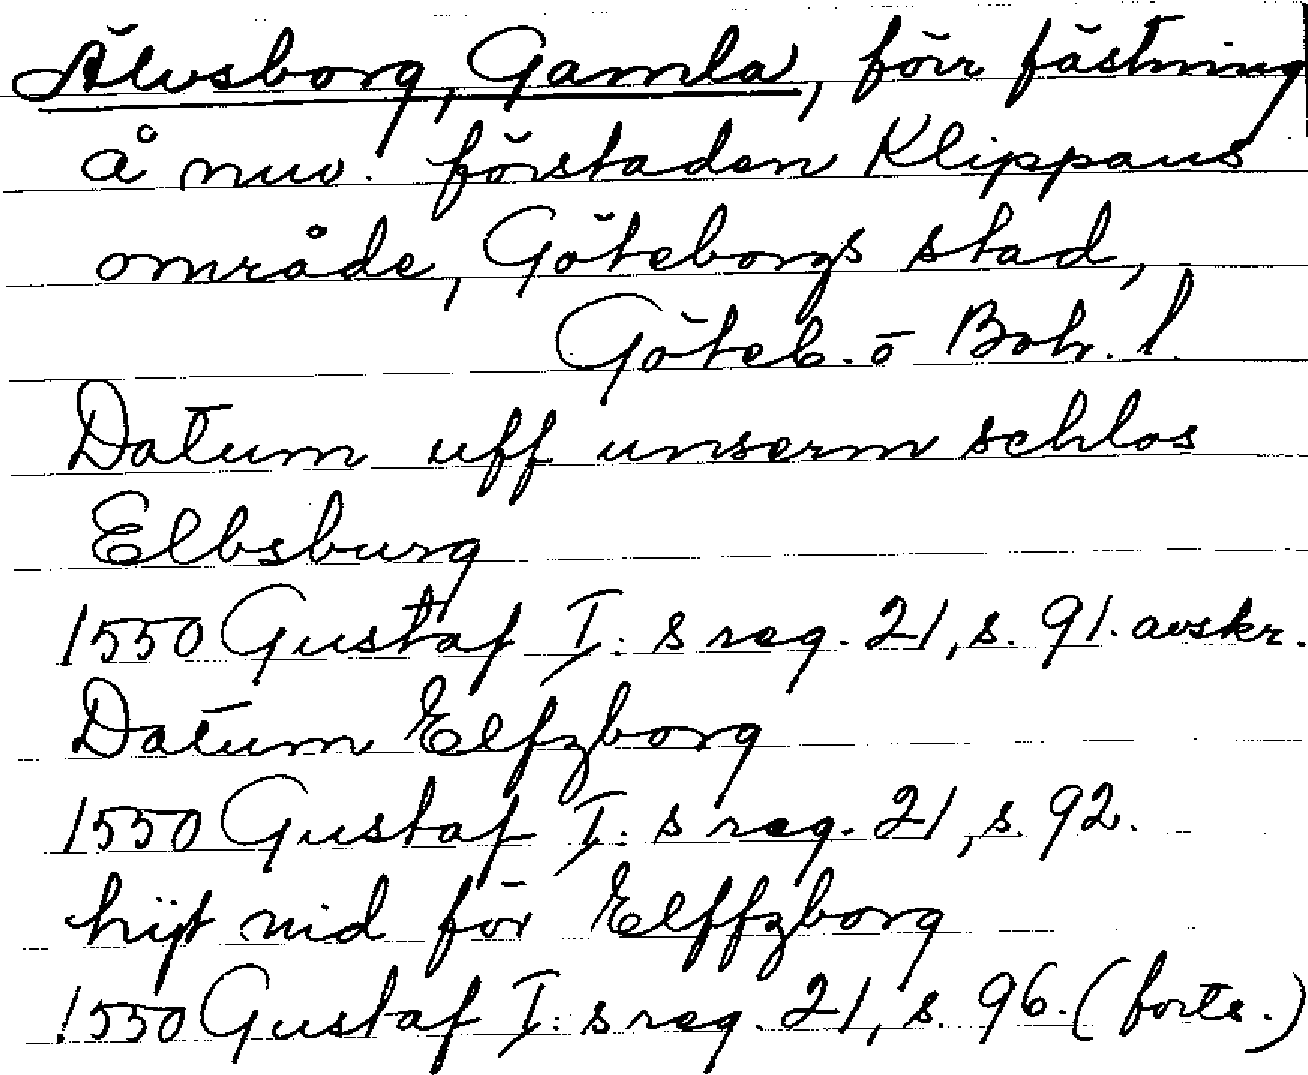 Älvsborg, Gamla, förr fästning
å nuv. förstaden Klippans
område, Göteborgs stad,
Göteb. o Boh. l.
Datum uff unserm schlos
Elbsburg
1550 Gustaf I:s reg. 21, s. 91. avskr.
Datum Elfzborg
1550 Gustaf I:s reg. 21, s. 92.
hijt nid för Elffzborg
1550 Gustaf I:s reg. 21, s. 96. (forts.)